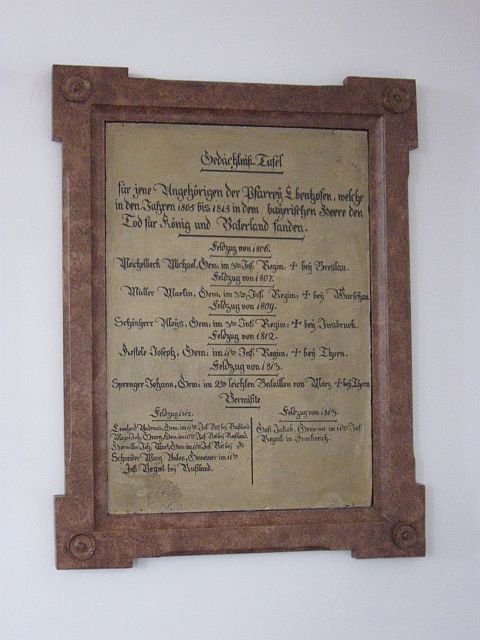 Gedächtniß-Tafel
für jene Angehörigen der Pfarrey Ebenhofen, welche
in den Jahren 1805 bis 1815 in dem bayerischen Heere den
Tod für König und Vaterland fanden.
Feldzug von 1806.
Meichelbeck Michael, Gem: im 3ten Inf: Regim: + bey Breslau.
Feldzug von 1807.
Müller Martin, Gem: im 3ten Inf: Regim: + bey Warschau.
Feldzug von 1809.
Schönherr Aloys, Gem: im 3ten Inf: Regim: + bey Innsbruck.
Feldzug von 1812.
Joseph, Gem: im 11ten Inf: Regim: + bey Thorn.
Feldzug von 1813.
Sprenger Johann, Gem: im 2ten leichten Bataillon von März + bey Thorn
Vermißte.
Feldzug 1812.
Andreas, Gem: im 11ten Inf: Rgt bey Rußland.
Mayer Joh: Georg, Gem: im 11ten Inf: Rgt bey Rußland.
Joh: Gem: im 11ten Inf: Rgt bey do
Schneider Anton, Gemeiner im 11ten
Inf: Regmt bey Rußland.
Feldzug von 1813.
Jakob, Gemeiner im 11ten Inf:
Regmt: in Frankreich.